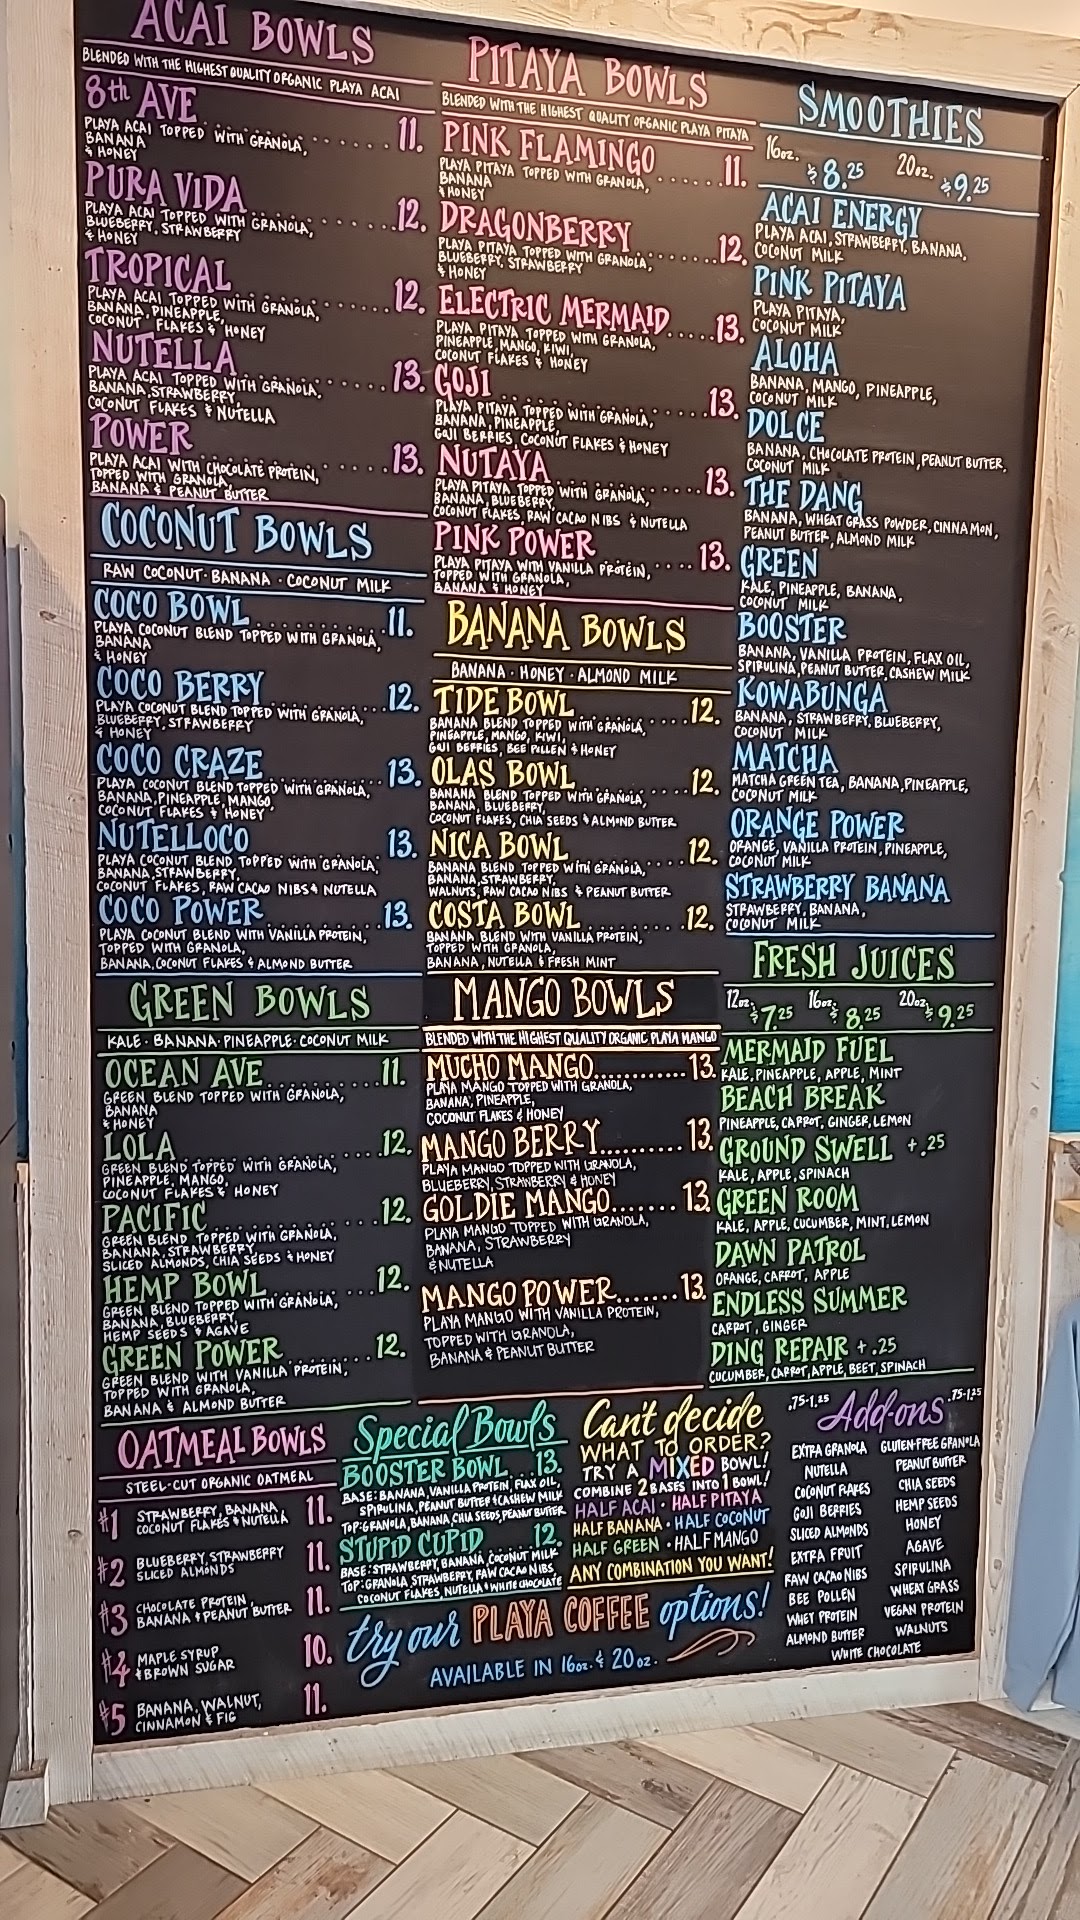 ACAI BOWLS
BLENDED WITH THE HIGHEST QUALITY ORGANIC PLAYA ACAI
8th AVE ...... 11.
PLAYA ACAI TOPPED WITH GRANOLA,
BANANA
& HONEY
PURA VIDA ...... 12.
PLAYA ACAI TOPPED WITH GRANOLA,
BLUEBERRY, STRAWBERRY
& HONEY
TROPICAL ...... 12.
PLAYA ACAI TOPPED WITH GRANOLA,
BANANA, PINEAPPLE,
COCONUT FLAKES & HONEY
NUTELLA ...... 13.
PLAYA ACAI TOPPED WITH GRANOLA,
BANANA, STRAWBERRY,
COCONUT FLAKES & NUTELLA
POWER ...... 13.
PLAYA ACAI WITH CHOCOLATE PROTEIN,
TOPPED WITH GRANOLA,
BANANA & PEANUT BUTTER
COCONUT BOWLS
RAW COCONUT · BANANA · COCONUT MILK
COCO BOWL ...... 11.
PLAYA COCONUT BLEND TOPPED WITH GRANOLA,
BANANA
& HONEY
COCO BERRY ...... 12.
PLAYA COCONUT BLEND TOPPED WITH GRANOLA,
BLUEBERRY, STRAWBERRY
& HONEY
COCO CRAZE ...... 13.
PLAYA COCONUT BLEND TOPPED WITH GRANOLA,
BANANA, PINEAPPLE, MANGO,
COCONUT FLAKES & HONEY
NUTELLOCO 13.
PLAYA COCONUT BLEND TOPPED WITH GRANOLA,
BANANA, STRAWBERRY,
COCONUT FLAKES, RAW CACAO NIBS & NUTELLA
COCO POWER ...... 13.
PLAYA COCONUT BLEND WITH VANILLA PROTEIN,
TOPPED WITH GRANOLA,
BANANA, COCONUT FLAKES & ALMOND BUTTER
GREEN BOWLS
KALE · BANANA · PINEAPPLE · COCONUT MILK
OCEAN AVE ...... 11.
GREEN BLEND TOPPED WITH GRANOLA,
BANANA
& HONEY
LOLA ...... 12.
GREEN BLEND TOPPED WITH GRANOLA,
PINEAPPLE, MANGO,
COCONUT FLAKES & HONEY
PACIFIC ...... 12.
GREEN BLEND TOPPED WITH GRANOLA,
BANANA, STRAWBERRY,
SLICED ALMONDS, CHIA SEEDS & HONEY
HEMP BOWL ...... 12.
GREEN BLEND TOPPED WITH GRANOLA,
BANANA, BLUEBERRY,
HEMP SEEDS & AGAVE
GREEN POWER ...... 12.
GREEN BLEND WITH VANILLA PROTEIN,
TOPPED WITH GRANOLA,
BANANA & ALMOND BUTTER
OATMEAL BOWLS
STEEL-CUT ORGANIC OATMEAL
#1 STRAWBERRY, BANANA, 11.
COCONUT FLAKES & NUTELLA
#2 BLUEBERRY, STRAWBERRY 11.
SLICED ALMONDS
#3 CHOCOLATE PROTEIN, 11.
BANANA & PEANUT BUTTER
#4 MAPLE SYRUP 10.
& BROWN SUGAR
#5 BANANA, WALNUT, 11.
CINNAMON & FIG
PITAYA BOWLS
BLENDED WITH THE HIGHEST QUALITY ORGANIC PLAYA PITAYA
PINK FLAMINGO ...... 11.
PLAYA PITAYA TOPPED WITH GRANOLA,
BANANA
& HONEY
DRAGONBERRY 12.
PLAYA PITAYA TOPPED WITH GRANOLA,
BLUEBERRY, STRAWBERRY
& HONEY
ELECTRIC MERMAID ..... 13.
PLAYA PITAYA TOPPED WITH GRANOLA,
PINEAPPLE, MANGO, KIWI,
COCONUT FLAKES & HONEY
GOJI ...... 13.
PLAYA PITAYA TOPPED WITH GRANOLA,
BANANA, PINEAPPLE,
GOJI BERRIES, COCONUT FLAKES & HONEY
NUTAYA ...... 13.
PLAYA PITAYA TOPPED WITH GRANOLA,
BANANA, BLUEBERRY,
COCONUT FLAKES RAW CACAO NIBS & NUTELLA
PINK POWER .... 13.
PLAYA PITAYA WITH VANILLA PROTEIN,
TOPPED WITH GRANOLA,
BANANA & HONEY
BANANA BOWLS
BANANA · HONEY · ALMOND MILK
TIDE BOWL .... 12.
BANANA BLEND TOPPED WITH GRANOLA,
PINEAPPLE, MANGO, KIWI,
GOJI BERRIES, BEE POLLEN & HONEY
OLAS BOWL .... 12.
BANANA BLEND TOPPED WITH GRANOLA,
BANANA, BLUEBERRY,
COCONUT FLAKES, CHIA SEEDS & ALMOND BUTTER
NICA BOWL .... 12.
BANANA BLEND TOPPED WITH GRANOLA,
BANANA, STRAWBERRY,
WALNUTS, RAW CACAO NIBS & PEANUT BUTTER
COSTA BOWL ...... 12.
BANANA BLEND WITH VANILLA PROTEIN,
TOPPED WITH GRANOLA,
BANANA, NUTELLA & FRESH MINT
MANGO BOWLS
BLENDED WITH THE HIGHEST QUALITY ORGANIC PLAYA MANGO
MUCHO MANGO............ 13.
PLAYA MANGO TOPPED WITH GRANOLA,
BANANA, PINEAPPLE,
COCONUT FLAKES & HONEY
MANGO BERRY.......... 13.
PLAYA MANGO TOPPED WITH GRANOLA,
BLUEBERRY, STRAWBERRY & HONEY
GOLDIE MANGO....... 13.
PLAYA MANGO TOPPED WITH GRANOLA,
BANANA, STRAWBERRY
& NUTELLA
MANGO POWER....... 13.
PLAYA MANGO WITH VANILLA PROTEIN,
TOPPED WITH GRANOLA,
BANANA & PEANUT BUTTER
Special Bowls
BOOSTER BOWL ... 13.
BASE: BANANA, VANILLA PROTEIN, FLAX OIL,
SPIRULINA, PEANUT BUTTER & CASHEW MILK
TOP: GRANOLA, BANANA, CHIA SEEDS, PEANUT BUTTER
STUPID CUPID ..... 12.
BASE: STRAWBERRY, BANANA, COCONUT MILK
TOP: GRANOLA, STRAWBERRY, RAW CACAO NIBS,
COCONUT FLAKES, NUTELLA & WHITE CHOCOLATE
Can't decide
WHAT TO ORDER?
TRY A MIXED BOWL!
COMBINE 2 BASES INTO 1 BOWL!
HALF ACAI · HALF PITAYA
HALF BANANA · HALF COCONUT
HALF GREEN · HALF MANGO
ANY COMBINATION YOU WANT!
try our PLAYA COFFEE options!
AVAILABLE IN 16oz. & 20oz.
SMOOTHIES
16oz. $8.25 20oz. $9.25
ACAI ENERGY
PLAYA ACAI, STRAWBERRY, BANANA,
COCONUT MILK
PINK PITAYA
PLAYA PITAYA,
COCONUT MILK
ALOHA
BANANA, MANGO, PINEAPPLE,
COCONUT MILK
DOLCE
BANANA, CHOCOLATE PROTEIN, PEANUT BUTTER,
COCONUT MILK
THE DANG
BANANA, WHEAT GRASS POWDER, CINNAMON,
PEANUT BUTTER, ALMOND MILK
GREEN
KALE, PINEAPPLE, BANANA,
COCONUT MILK
BOOSTER
BANANA, VANILLA PROTEIN, FLAX OIL,
SPIRULINA, PEANUT BUTTER, CASHEW MILK
KOWABUNGA
BANANA, STRAWBERRY, BLUEBERRY,
COCONUT MILK
MATCHA
MATCHA GREEN TEA, BANANA, PINEAPPLE,
COCONUT MILK
ORANGE POWER
ORANGE, VANILLA PROTEIN, PINEAPPLE,
COCONUT MILK
STRAWBERRY BANANA
STRAWBERRY, BANANA,
COCONUT MILK
FRESH JUICES
12oz. $7.25 16oz. $8.25 20oz. $9.25
MERMAID FUEL
KALE, PINEAPPLE, APPLE, MINT
BEACH BREAK
PINEAPPLE, CARROT, GINGER, LEMON
GROUND SWELL +.25
KALE, APPLE, SPINACH
GREEN ROOM
KALE, APPLE, CUCUMBER, MINT, LEMON
DAWN PATROL
ORANGE, CARROT, APPLE
ENDLESS SUMMER
CARROT, GINGER
DING REPAIR +.25
CUCUMBER, CARROT, APPLE, BEET, SPINACH
.75-1.25 Add-ons .75-1.25
EXTRA GRANOLA GLUTEN-FREE GRANOLA
NUTELLA PEANUT BUTTER
COCONUT FLAKES CHIA SEEDS
GOJI BERRIES HEMP SEEDS
SLICED ALMONDS HONEY
EXTRA FRUIT AGAVE
RAW CACAO NIBS SPIRULINA
BEE POLLEN WHEAT GRASS
WHEY PROTEIN VEGAN PROTEIN
ALMOND BUTTER WALNUTS
WHITE CHOCOLATE